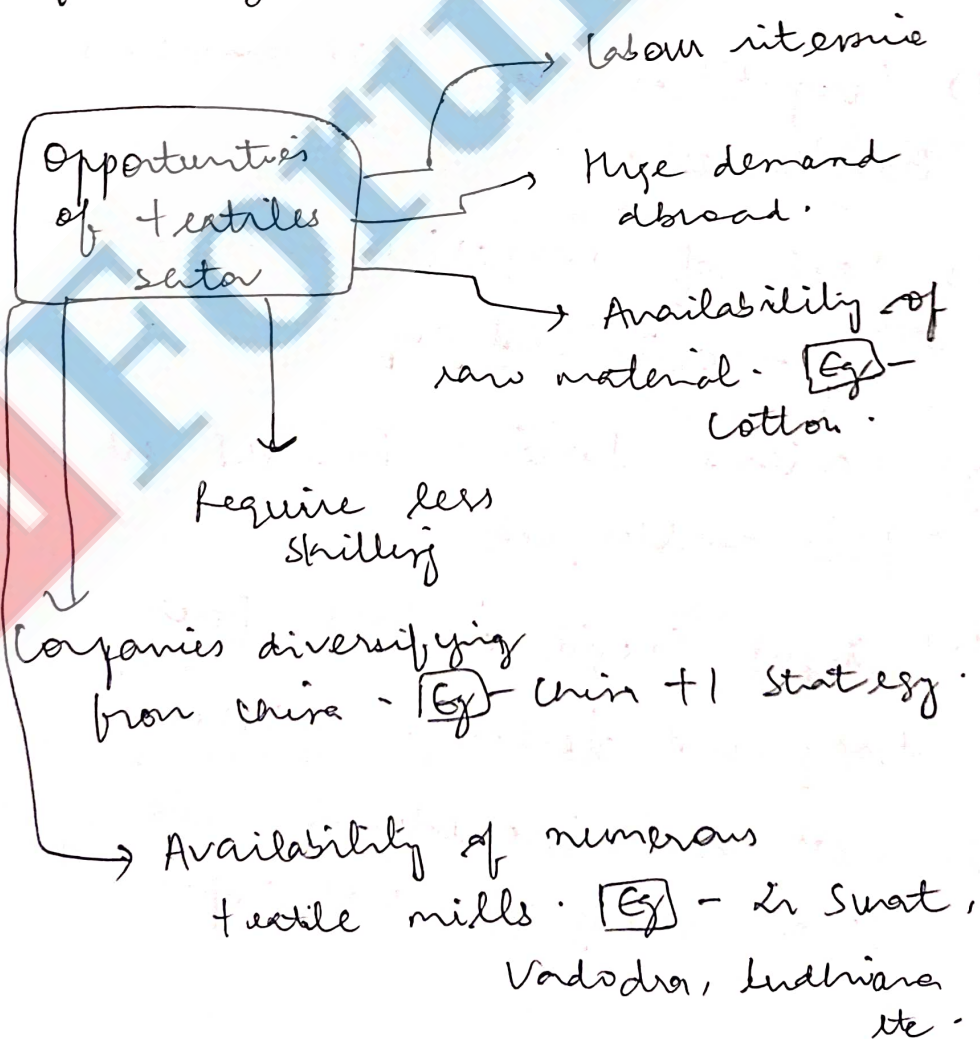 Labour intensive
Opportunities
of textiles
sector
Huge demand
abroad.
Availability of
raw material. Eg -
Cotton.
Require less
skilling
Companies diversifying
from china - Eg - China +1 Strategy.
Availability of numerous
textile mills. Eg - In Surat,
Vadodra, Ludhiana
etc.
Forum